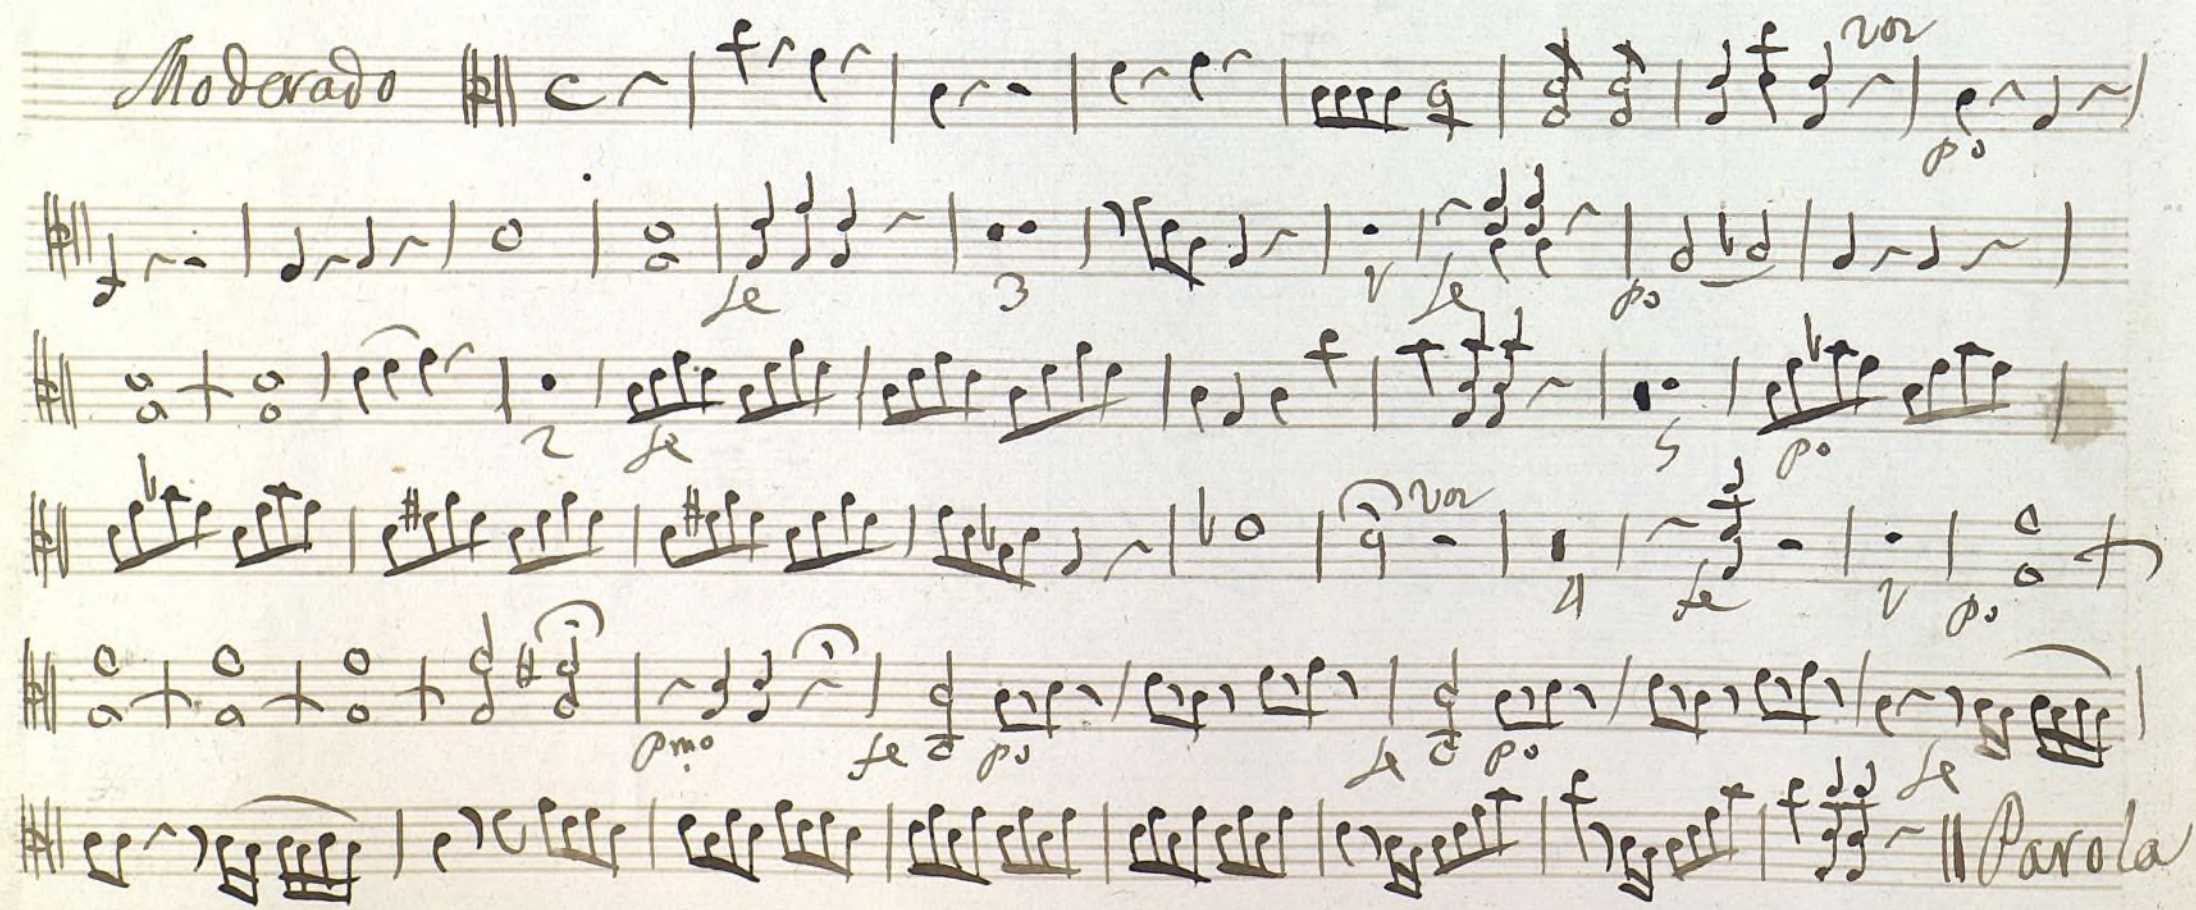 Moderado C voz
po
fe 3 v fe po
2 fe 5 po
voz
4 fe v po
pmo fe po fe po fe
Parola